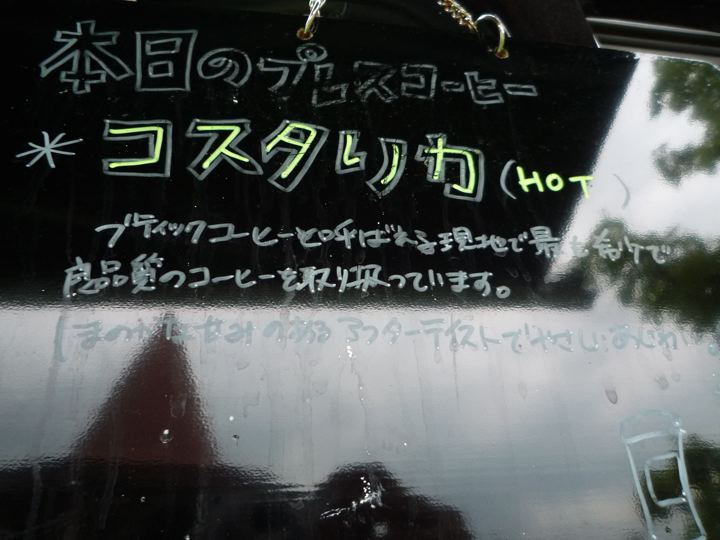 本日のプレスコーヒー
* コスタリカ (HOT)
ブティックコーヒーと呼ばれる現地で最も希少で
良品質のコーヒーを取り扱っています。
のあるアフターテイストでやさしいあじわい